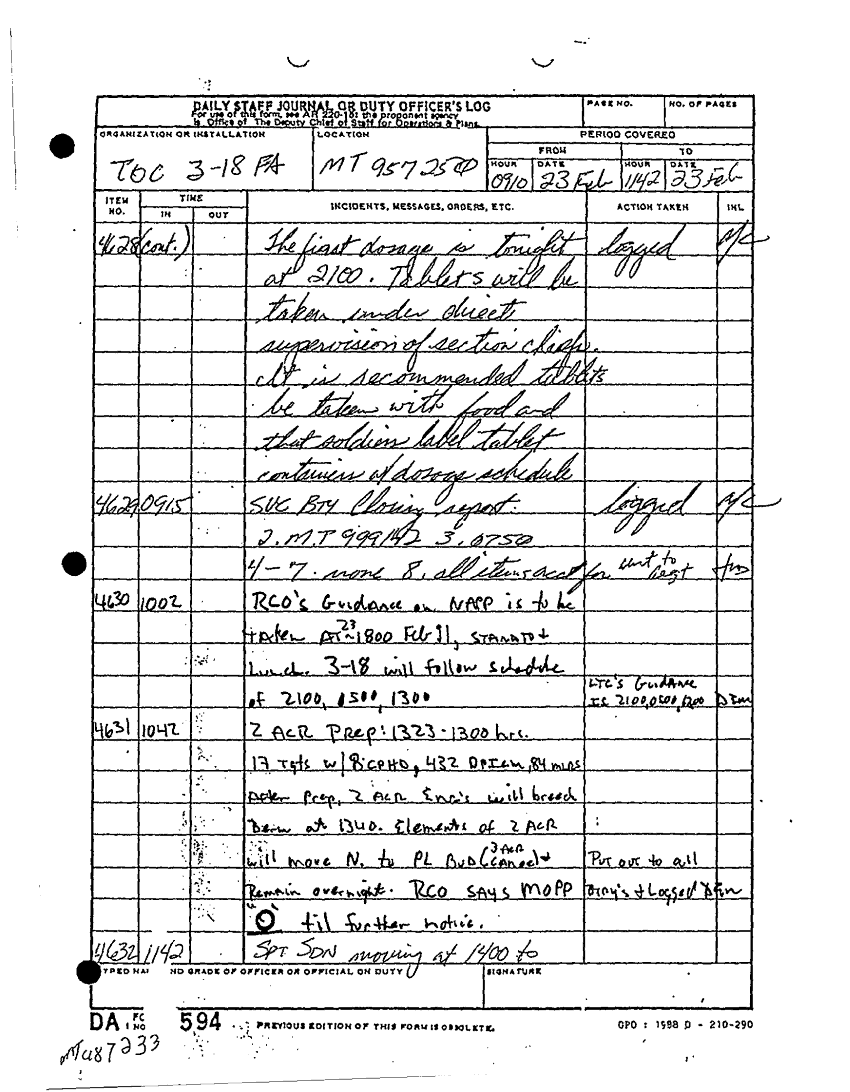 DAILY STAFF JOURNAL OR DUTY OFFICER'S LOG
For use of this form, see AR 220-15; the proponent agency
is Office of The Deputy Chief of Staff for Operations & Plans.
PAGE NO.
NO. OF PAGES
ORGANIZATION OR INSTALLATION
TOC 3-18 FA
LOCATION
MT 957250
PERIOD COVERED
FROM TO
HOUR DATE HOUR DATE
0910 23 Feb 1142 23 Feb
ITEM NO. TIME INCIDENTS, MESSAGES, ORDERS, ETC. ACTION TAKEN INL
IN OUT
4628 (cont.) The first dosage is tonight logged
at 2100. Tablets will be
taken under direct
supervision of section chiefs.
It is recommended tablets
be taken with food and
that soldiers label tablet
containers w/ dosage schedule
4629 0915 SVC BTY Closing report: logged
2. MT 999142 3. 0750
4-7. none 8. all items acct for
4630 1002 RCO's Guidance on NAPP is to be
taken AT 23 1800 Feb 91, +
Lunch. 3-18 will follow schedule
of 2100, 0500, 1300 LTC's Guidance
is 2100, 0500, 1300
4631 1042 2 ACR Prep: 1323-1300 hrs.
17 Tgts w/ 8" CPHD, 432 DPICM, 84 MLRS
After Prep, 2 ACR Eng's will breech
Berm at 1340. Elements of 2 ACR
will move N. to PL BUD (3 ACR +
Remain overnight. RCO SAYS MOPP
"O" til further notice.
Put out to all
Btry's + Logged
4632 1142 SPT SDN moving at 1400 to
TYPED NA ND GRADE OF OFFICER OR OFFICIAL ON DUTY
SIGNATURE
DA FORM NO 594
PREVIOUS EDITION OF THIS FORM IS OBSOLETE.
GPO : 1988 O - 210-290
MT487233